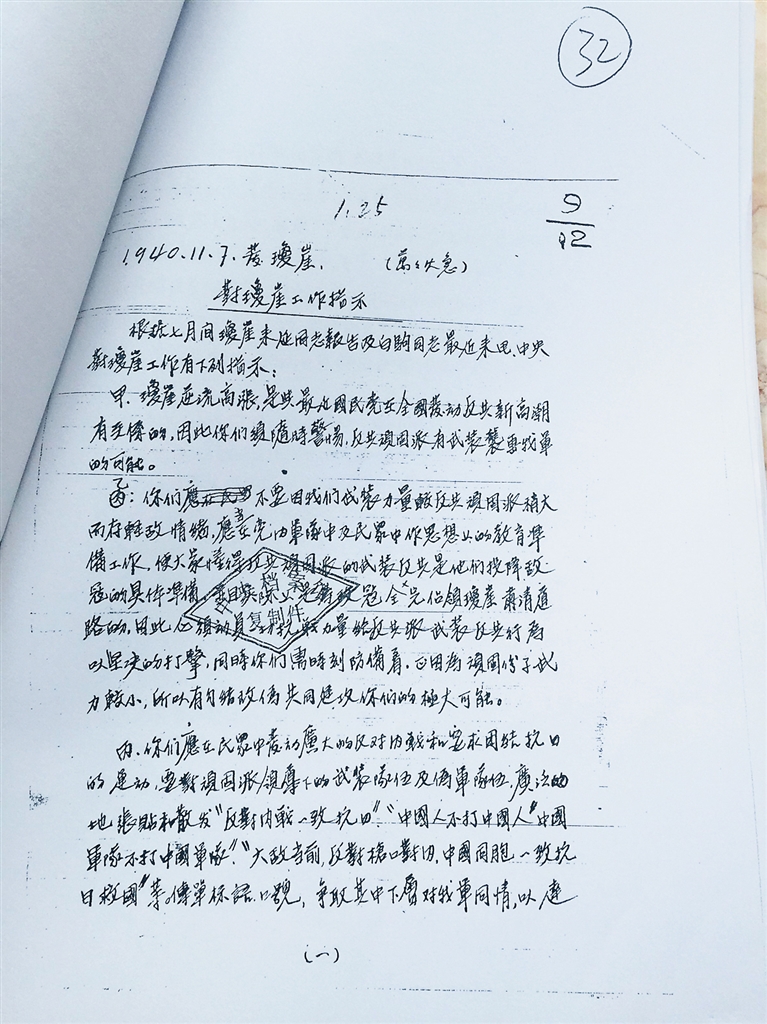 32
1.25
9
12
1940.11.7.發瓊崖. (萬々火急)
對瓊崖工作指示
根據七月间瓊崖來延同志報告及白駒同志最近来电、中央
對瓊崖工作有下列指示:
甲、瓊崖逆流高漲,是與最近國民党在全國发动反共新高潮
有关係的,因此你們須隨時警惕,反共頑固派有武装襲擊我軍
的可能。
乙:你们不要因我們武装力量較反共頑固派稍大
而存輕敌情绪,應当在党内軍隊中及民眾中作思想上的教育準
備工作,使大家懂得反共頑固派的武装反共是他们投降敌
寇的具体準備,寇全完佔領瓊崖肅清道
路的,因此必須动員力量給反共派武装反共行為
以坚决的打擊,同時你们需時刻防備着,正因為頑固份子武
力較小,所以有勾结敌偽共同進攻你們的極大可能。
档案
复制件
丙、你们應在民眾中发动廣大的反对内戰和要求团结抗日
的運动,要對頑固派領導下的武装隊伍及偽軍隊伍,廣泛的
地張貼和散发"反對内戰一致抗日""中國人不打中國人""中國
軍隊不打中國軍隊""大敌当前,反對槍口對内,中國同胞一致抗
日救國"等傳單标語口號,争取其中下層对我軍同情,以達
(一)